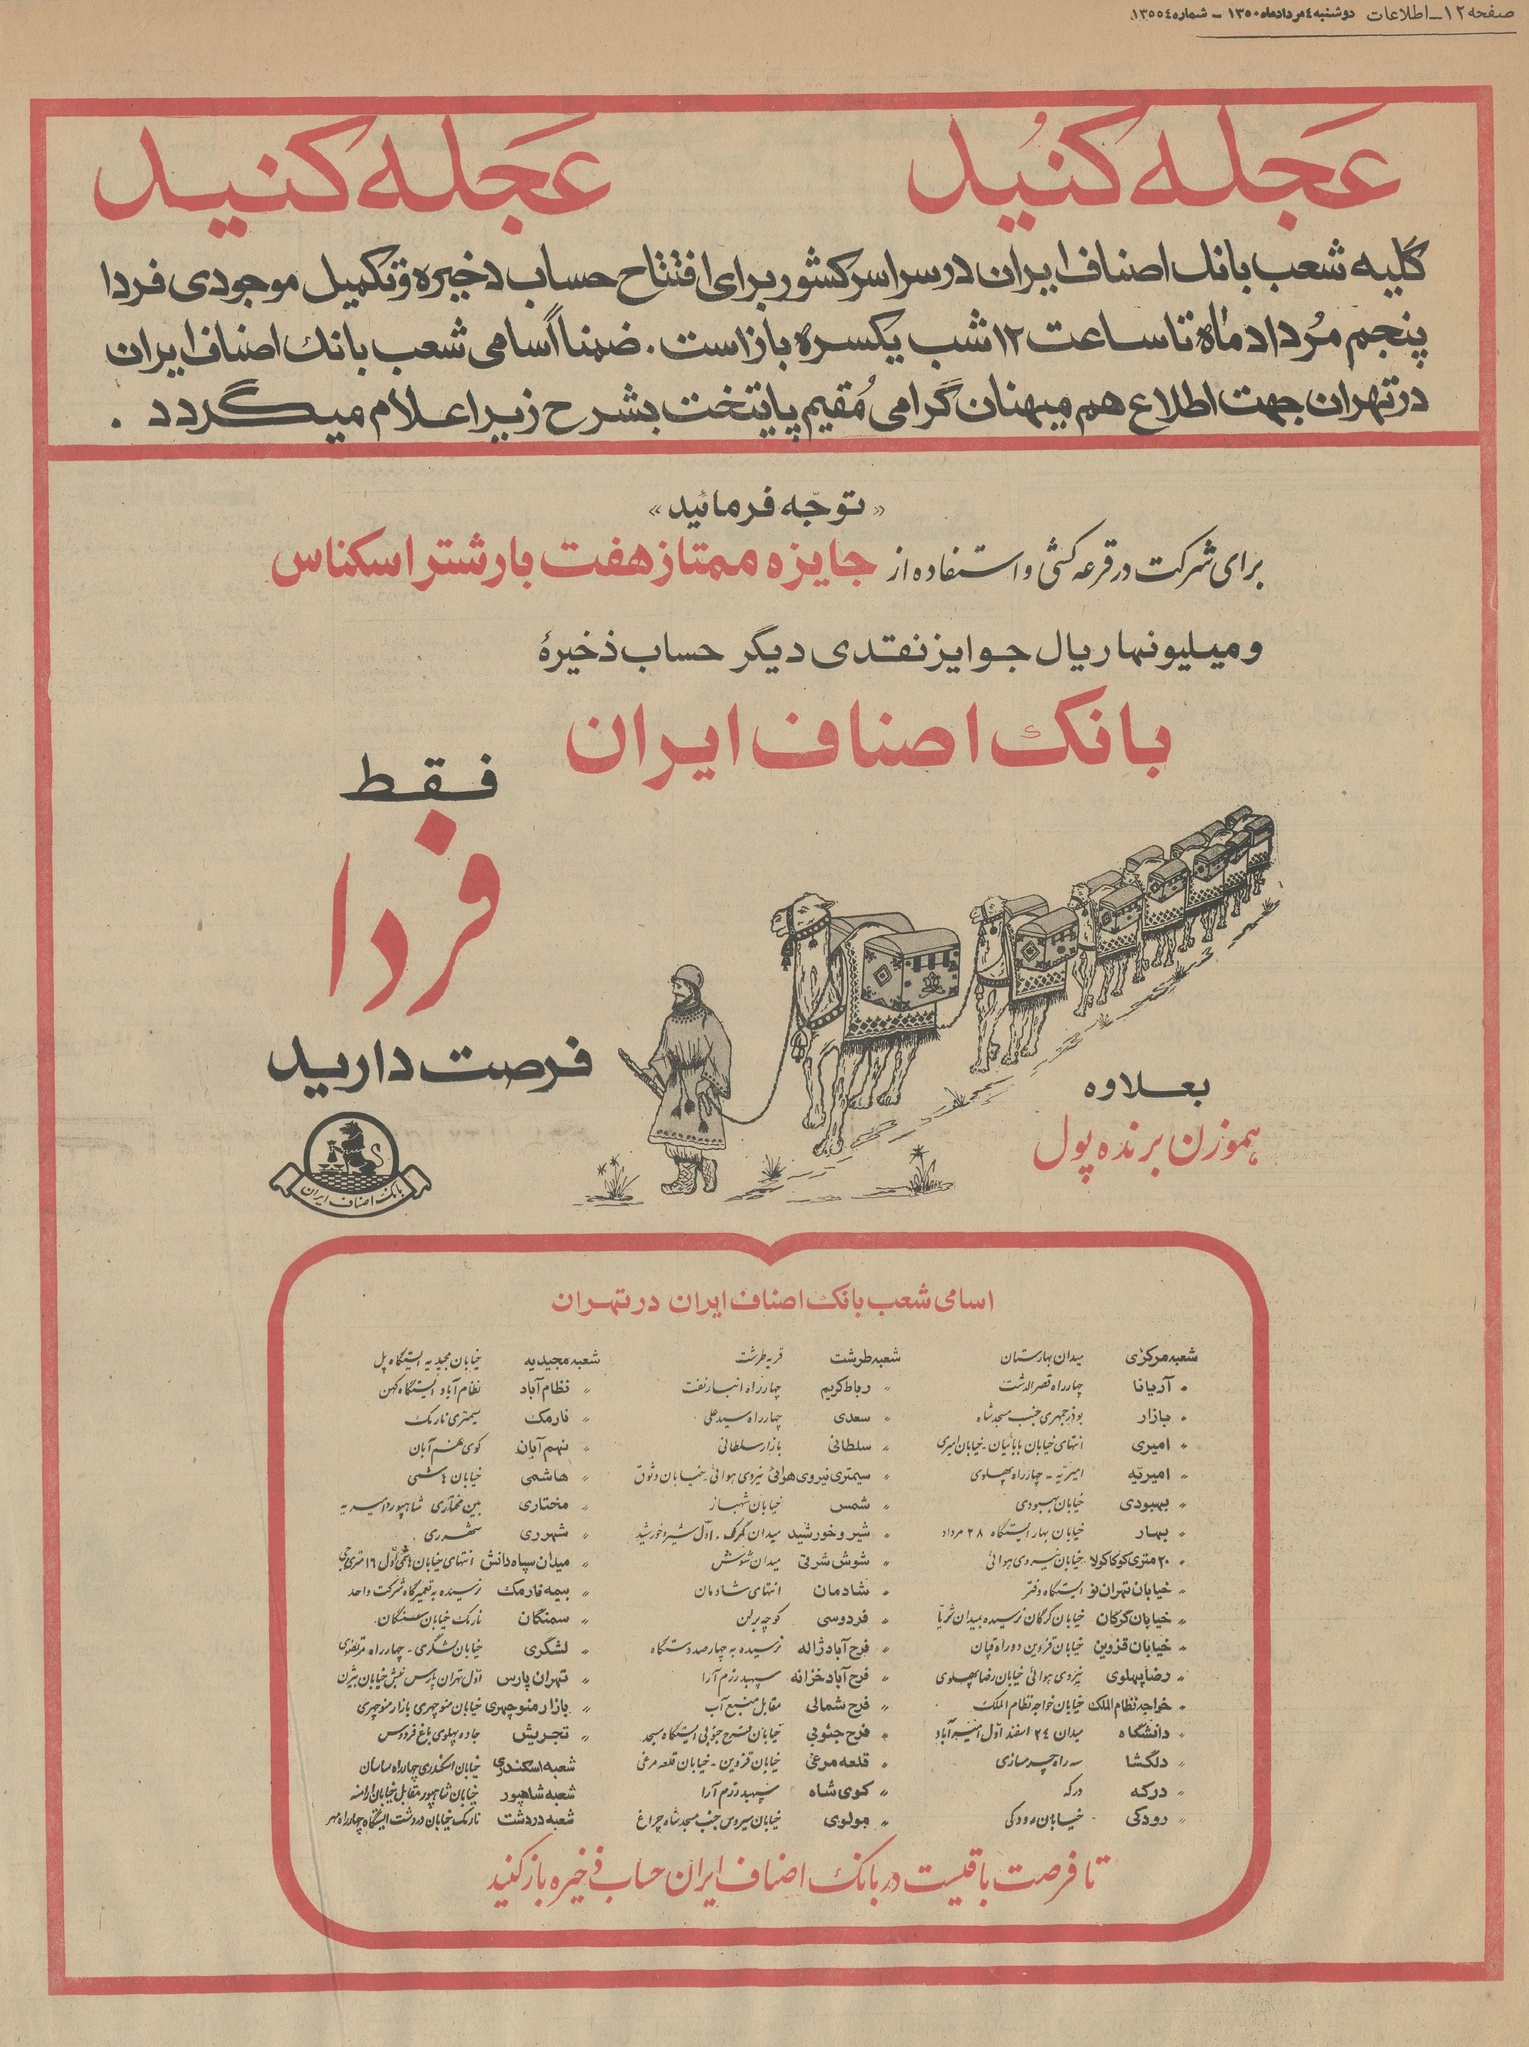 صفحه ۱۲ـ اطلاعات دوشنبه ۴ مرداد ماه ۱۳۵۰ ـ شماره ۱۳۵۵۴
عجله کنید عجله کنید
کلیه شعب بانک اصناف ایران در سراسر کشور برای افتتاح حساب ذخیره و تکمیل موجودی فردا
پنجم مرداد ماه تا ساعت ۱۲ شب یکسره باز است. ضمناً اسامی شعب بانک اصناف ایران
در تهران جهت اطلاع هم میهنان گرامی مقیم پایتخت بشرح زیر اعلام میگردد.
«توجّه فرمائید»
برای شرکت در قرعه کشی و استفاده از جایزه ممتاز هفت بار شتر اسکناس
و میلیونها ریال جوایز نقدی دیگر حساب ذخیرهٔ
بانک اصناف ایران
فقط
فردا
فرصت دارید
بعلاوه
هموزن برنده پول
بانک اصناف ایران
اسامی شعب بانک اصناف ایران در تهران
شعبه مرکزی میدان بهارستان
" آریانا چهارراه قصرالدشت
" بازار بوذرجمهری جنب مسجد شاه
" امیری انتهای خیابان بابائیان - خیابان امیری
" امیریّه امیریّه - چهارراه پهلوی
" بهبودی خیابان بهبودی
" بهار خیابان بهار ایستگاه ۲۸ مرداد
" ۲۰ متری کوکاکولا خیابان نیروی هوائی
" خیابان تهران نو ایستگاه دفتر
" خیابان گرگان خیابان گرگان نرسیده بمیدان ثریّا
" خیابان قزوین خیابان قزوین دوراه قپان
" رضا پهلوی نیروی هوائی خیابان رضا پهلوی
" خواجه نظام الملک خیابان خواجه نظام الملک
" دانشگاه میدان ۲۴ اسفند اوّل امیرآباد
" دلگشا سه راه
" درکه درکه
" رودکی خیابان رودکی
شعبه طرشت قریه طرشت
" رباط کریم چهارراه انبار نفت
" سعدی چهارراه سیدعلی
" سلطانی بازار سلطانی
" سیمتری نیروی هوائی نیروی هوائی - خیابان وثوق
" شمس خیابان شهباز
" شیر و خورشید میدان گمرک - اوّل شیر و خورشید
" شوش شرقی میدان شوش
" شادمان انتهای شادمان
" فردوسی کوچه برلن
" فرح آباد ژاله نرسیده به چهارصد دستگاه
" فرح آباد خزانه سپهبد رزم آرا
" فرح شمالی مقابل منبع آب
" فرح جنوبی خیابان فرح جنوبی ایستگاه مسجد
" قلعه مرغی خیابان قزوین - خیابان قلعه مرغی
" کوی شاه سپهبد رزم آرا
" مولوی خیابان سیروس جنب مسجد شاه چراغ
شعبه مجیدیه خیابان مجیدیه ایستگاه پل
" نظام آباد نظام آباد ایستگاه کهن
" نارمک سیمتری نارمک
" نهم آبان کوی نهم آبان
" هاشمی خیابان هاشمی
" مختاری بین مختاری شاهپور و امیریه
" شهرری شهرری
" میدان سپاه دانش انتهای خیابان هاشمی اوّل ۱۶ متری
" بیمه نارمک نرسیده به تعمیرگاه شرکت واحد
" سمنگان نارمک خیابان سمنگان
" لشگری خیابان لشگری - چهارراه مرتضوی
" تهران پارس اوّل تهران پارس نبش خیابان بیژن
" بازار منوچهری خیابان منوچهری بازار منوچهری
" تجریش جاده پهلوی باغ فردوس
شعبه اسکندری خیابان اسکندری چهارراه ساسان
شعبه شاهپور خیابان شاهپور مقابل خیابان ارامنه
شعبه دردشت نارمک خیابان دردشت ایستگاه چهارراه مهر
تا فرصت باقیست در بانک اصناف ایران حساب ذخیره باز کنید